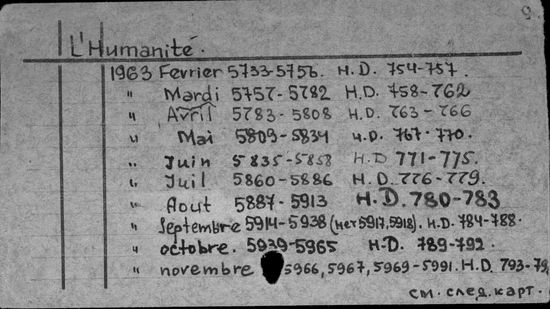 9
L'Humanité.
1963 Fevrier 5733-5756. H.D. 754-757.
" Mardi 5757-5782 H.D. 758-762
" Avril 5783-5808 H.D. 763-766
" Mai 5809-5834 H.D. 767-770.
" Juin 5835-5858 H.D 771-775.
" Juil 5860-5886 H.D. 776-779.
" Aout 5887-5913 H.D. 780-783
" Septembre 5914-5938 (нет 5917,5918). H.D. 784-788.
" octobre. 5939-5965 H.D. 789-792.
" novembre 5966, 5967, 5969-5991. H.D. 793-79
см. след. карт.